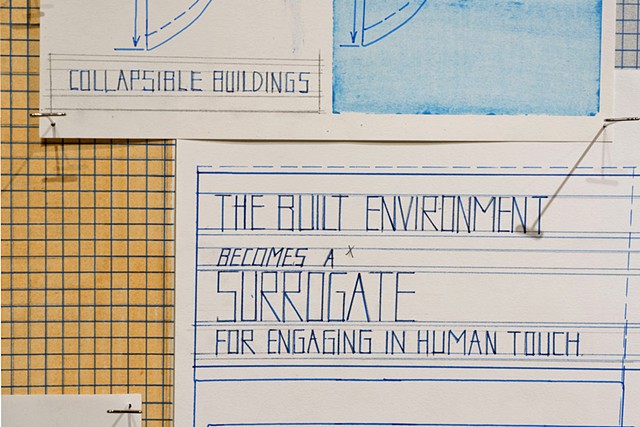 COLLAPSIBLE BUILDINGS
THE BUILT ENVIRONMENT
BECOMES A x
SURROGATE
FOR ENGAGING IN HUMAN TOUCH.